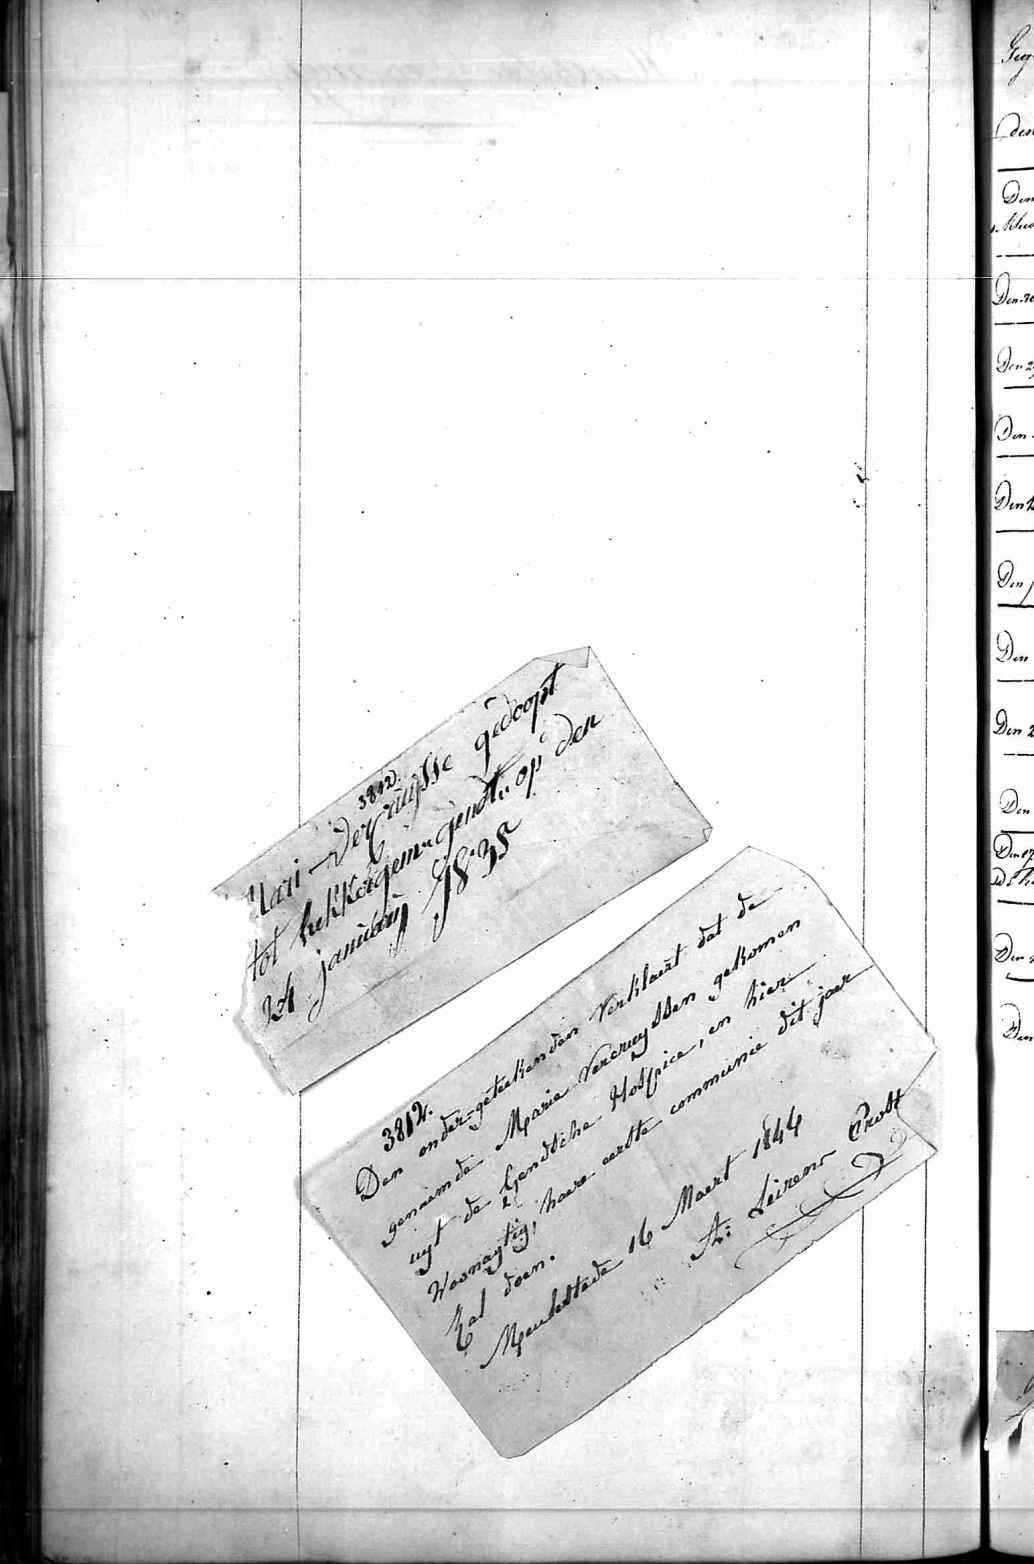 3812.
Mari Vercruÿsse gedoopt
tot hekkergem gendt op den
24 januarÿ 1835
3812.
Den onder-geteekenden Verklaert dat de
genaemde Marie Vercruyssen gekomen
uyt de Gendsche Hospice, en hier
Woonagtig, haere eerste communie dit jaer
Zal doen.
Meulestede 16 Maert 1844
A: Seirens Prost
Den
Den
Den
Den 2
Den
Den
Den
Den
Den 2
Den
Den
Den
Den